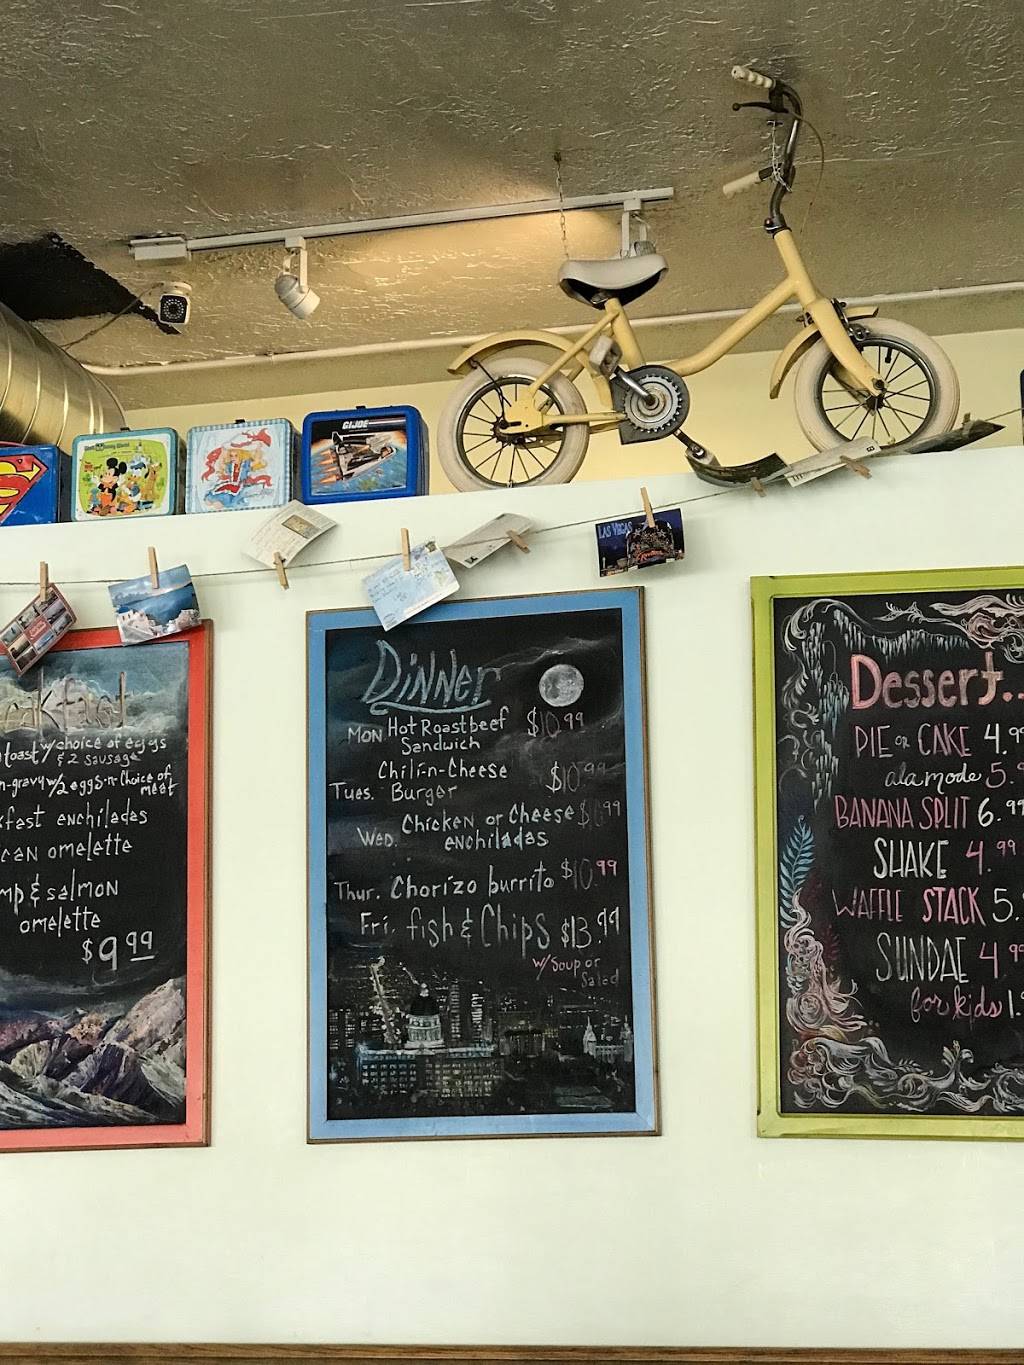 GIJOE
LAS VEGAS
toast w/ choice of eggs
& 2 sausage
n-gravy w/2 eggs -n- choice of
meat
kfast enchiladas
can omelette
mp & salmon
omelette
$9.99
Dinner
MON Hot Roastbeef $10.99
Sandwich
Chili-n-Cheese $10.99
Tues. Burger
Chicken or Cheese
Wed. enchiladas
Thur. Chorizo burrito $10.99
Fri. fish & Chips $13.99
w/ Soup or
Salad
Dessert..
PIE or CAKE 4.99
ala mode 5.9
BANANA SPLIT 6.99
SHAKE 4.99
WAFFLE STACK 5.
SUNDAE 4.99
for kids 1.